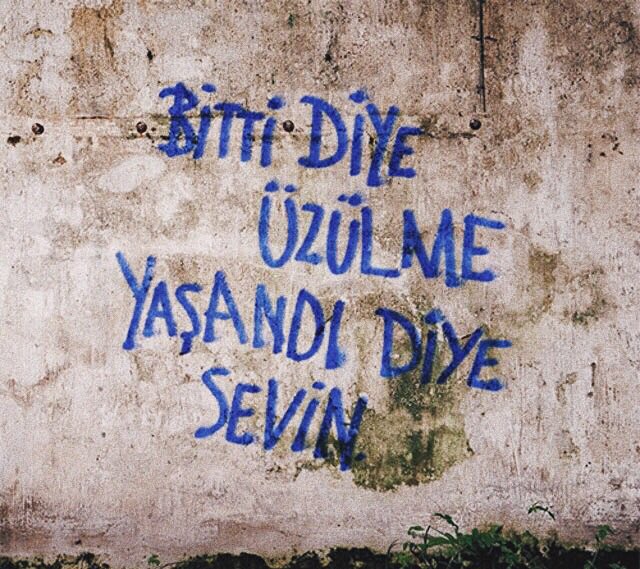 BİTTİ DİYE
ÜZÜLME
YAŞANDI DİYE
SEVİN.